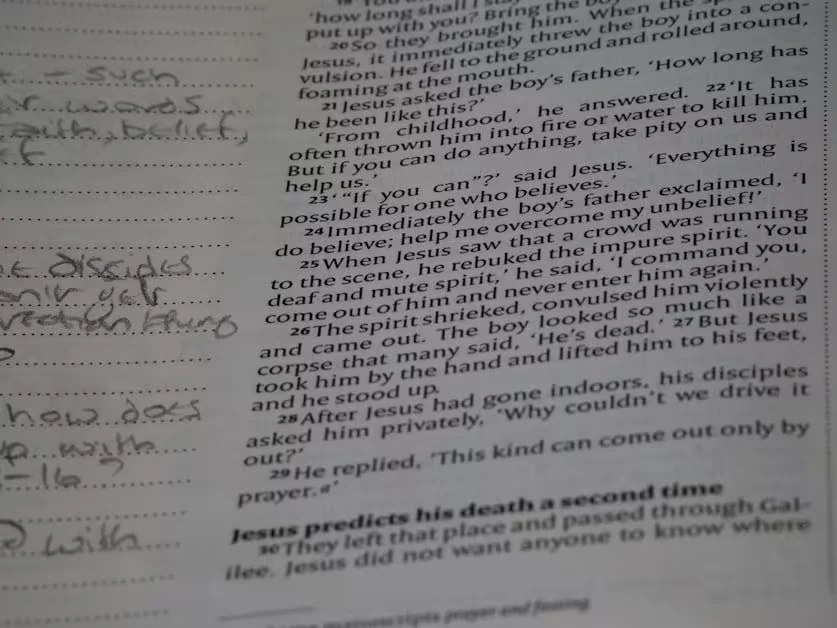 'how long shall I
put up with you? Bring the
20 So they brought him. When the
Jesus, it immediately threw the boy into a con-
vulsion. He fell to the ground and rolled around,
foaming at the mouth.
21 Jesus asked the boy's father, 'How long has
he been like this?'
'From childhood,' he answered. 22 'It has
often thrown him into fire or water to kill him.
But if you can do anything, take pity on us and
help us.'
23 '"If you can"?' said Jesus. 'Everything is
possible for one who believes.'
24 Immediately the boy's father exclaimed, 'I
do believe; help me overcome my unbelief!'
25 When Jesus saw that a crowd was running
to the scene, he rebuked the impure spirit. 'You
deaf and mute spirit,' he said, 'I command you,
come out of him and never enter him again.'
26 The spirit shrieked, convulsed him violently
and came out. The boy looked so much like a
corpse that many said, 'He's dead.' 27 But Jesus
took him by the hand and lifted him to his feet,
and he stood up.
28 After Jesus had gone indoors, his disciples
asked him privately, 'Why couldn't we drive it
out?'
29 He replied, 'This kind can come out only by
prayer.a'
Jesus predicts his death a second time
30 They left that place and passed through Gal-
ilee. Jesus did not want anyone to know where
manuscripts prayer and fasting
- such
words
belief,
how does
with
-16?
with